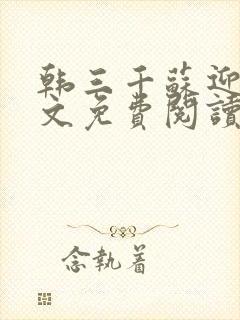 韩三千蘇迎
文免費閱讀
念執着